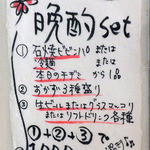 晩酌set
① 石焼ビビンバ または
冷麺 または
本日のチヂミ から1品
② おかず3種盛り
③ 生ビールまたはグラスマッコリ
またはソフトドリンク各種
①+②+③で